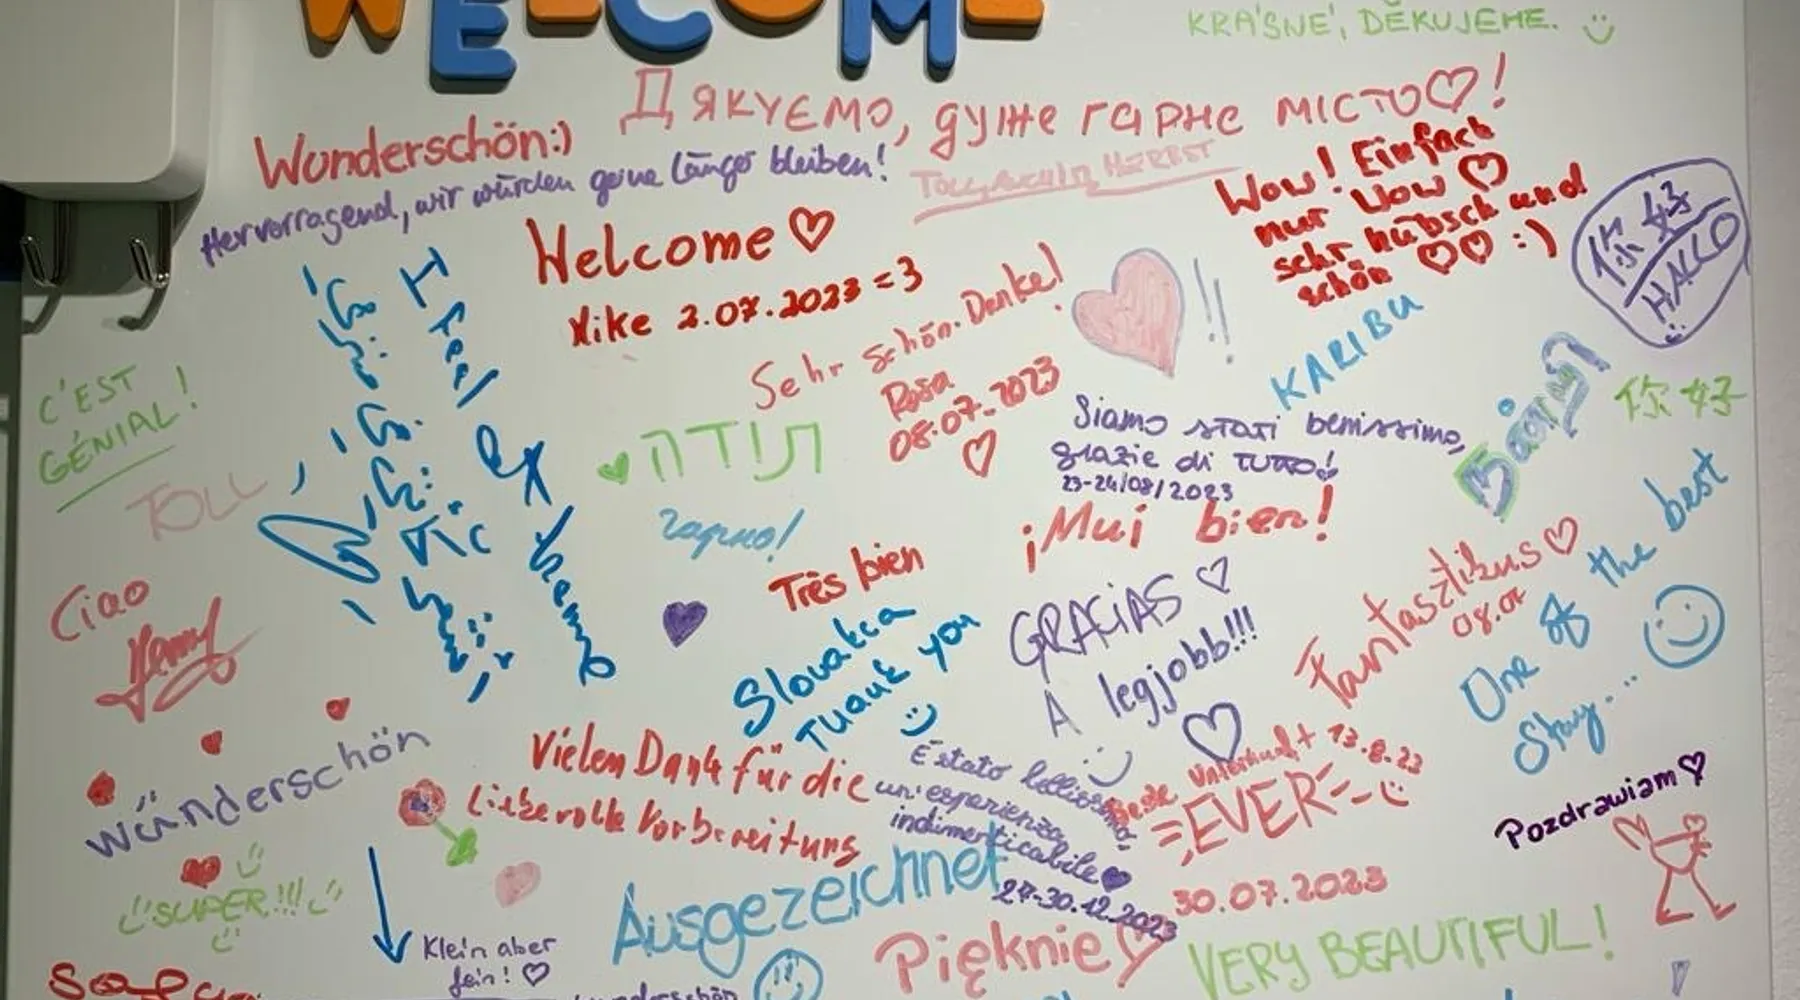 WELCOME
KRÁSNÉ, DĚKUJEME.
Дякуємо, дуже гарне місто!
Wonderschön:)
Hervorragend, wir würden gerne länger bleiben!
TOLL, AUCH IN HERBST
Wow! Einfach
nur Wow
sehr hübsch und
schön :)
你好
HALLO
Welcome
2.07.2023 = 3
I feel at home
Sehr schön. Danke!
08.07.2023
KARIBU
C'EST
GÉNIAL!
תודה
Siamo stati benissimo,
grazie di tutto!
23-24/08/2023
你好
TOLL
гарно!
¡Mui bien!
Très bien
One of the best
Stay...
Fantasztikus
08.07
Ciao
Slovakia
Thank you
GRACIAS
A legjobb!!!
wünderschön
Vielen Dank für die
Liebevolle Vorbereitung
É stato bellissimo
un'esperienza
indimenticabile
27-30.12.2023
Beste Unterkunft 13.8.23
EVER
Pozdrawiam
SUPER!!!
Ausgezeichnet
30.07.2023
Klein aber
fein!
Pięknie
VERY BEAUTIFUL!